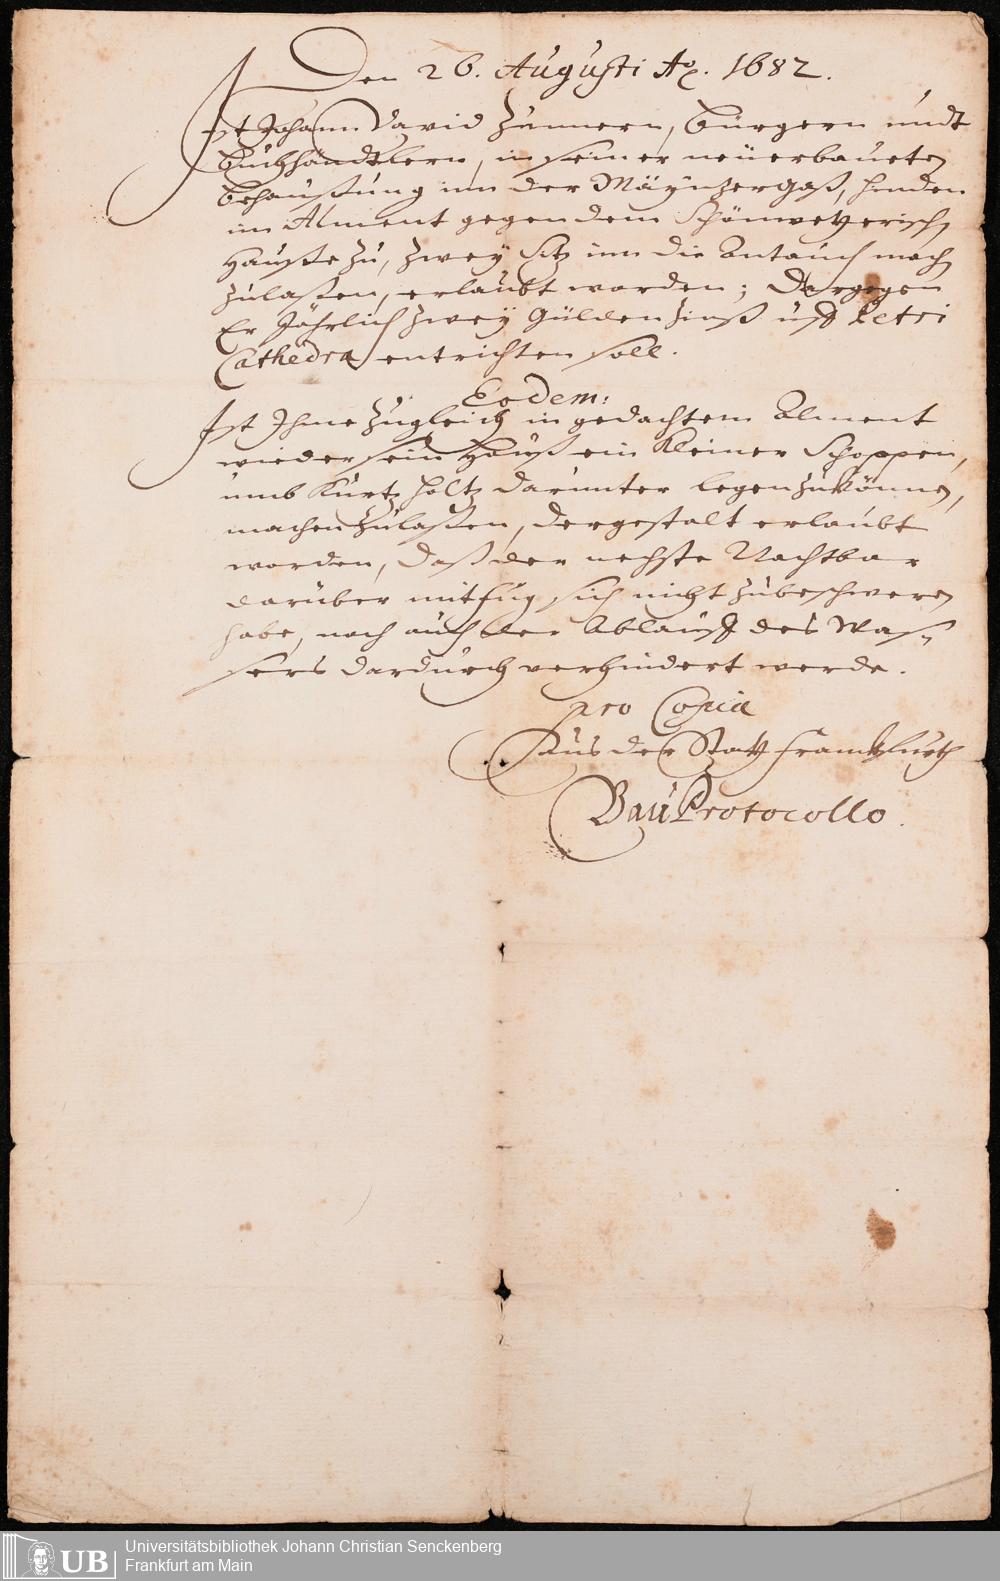 Den 26. Augusti Ao. 1682.
Ist Johann David Zunnern, Bürgern undt
Buchhändtlern, in seiner neüerbaueten
Behaußung inn der Mäyntzergaß, hinden
im Alment gegen dem Schönwetterisch
Hauße zu, zwey Sitz inn die Antauch mach
zulaßen, erlaubt worden; Dargegen
Er Jährlich zwey Gülden Zinß uff Petri
Cathedra entrichten soll.
Eodem:
Ist Ihme zugleich in gedachtem Alment
wieder sein Hauß ein Kleiner Schoppen,
umb Kurtz holtz darunter legen zukönnen,
machen zulaßen, dergestalt erlaubt
worden, daß der nechste Nachtbar
darüber mit fug sich nicht zubeschweren
habe, noch auch der Ablauff des Was-
sers dardurch verhindert werde.
pro Copia
Aus der Statt Franckfurth
BauProtocollo.
UB
Universitätsbibliothek Johann Christian Senckenberg
Frankfurt am Main